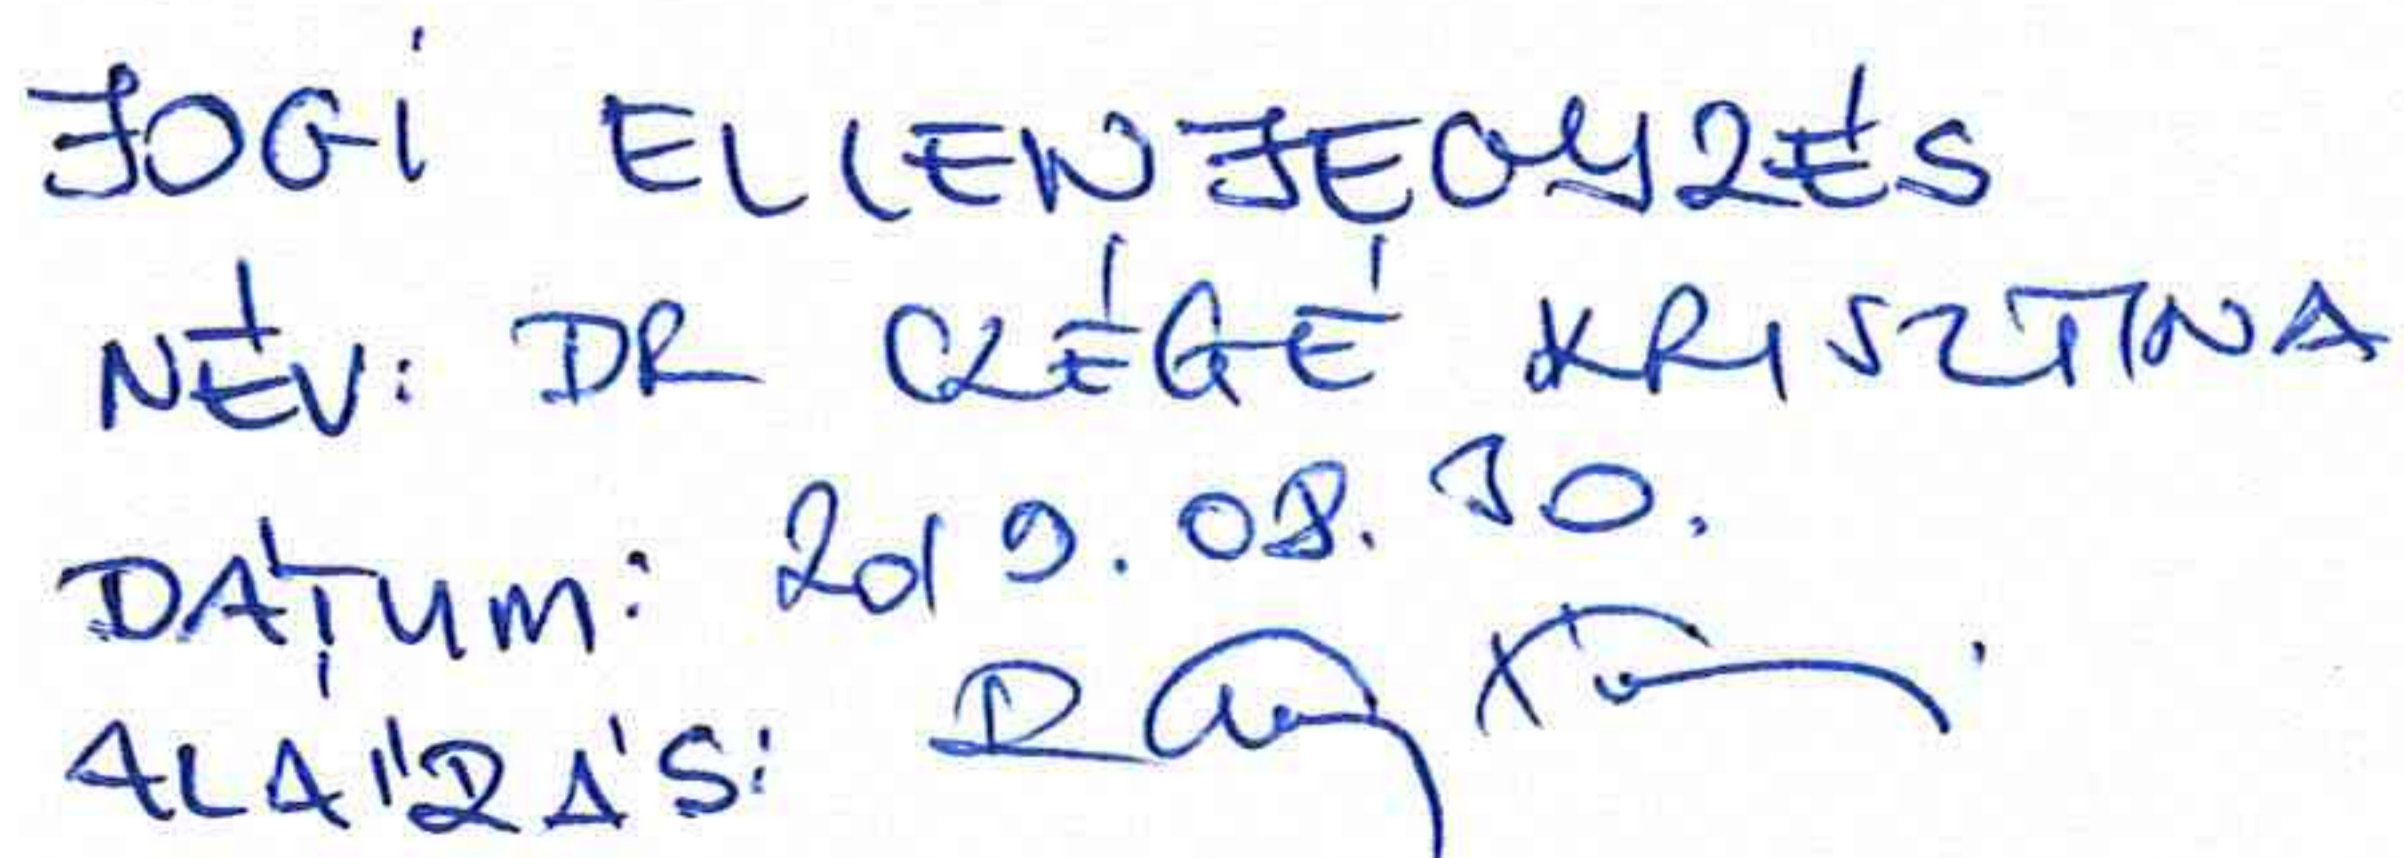 JOGI ELLENJEGYZÉS
NÉV: DR CZÉGÉ KRISZTINA
DÁTUM: 2019.08.30.
ALÁÍRÁS: